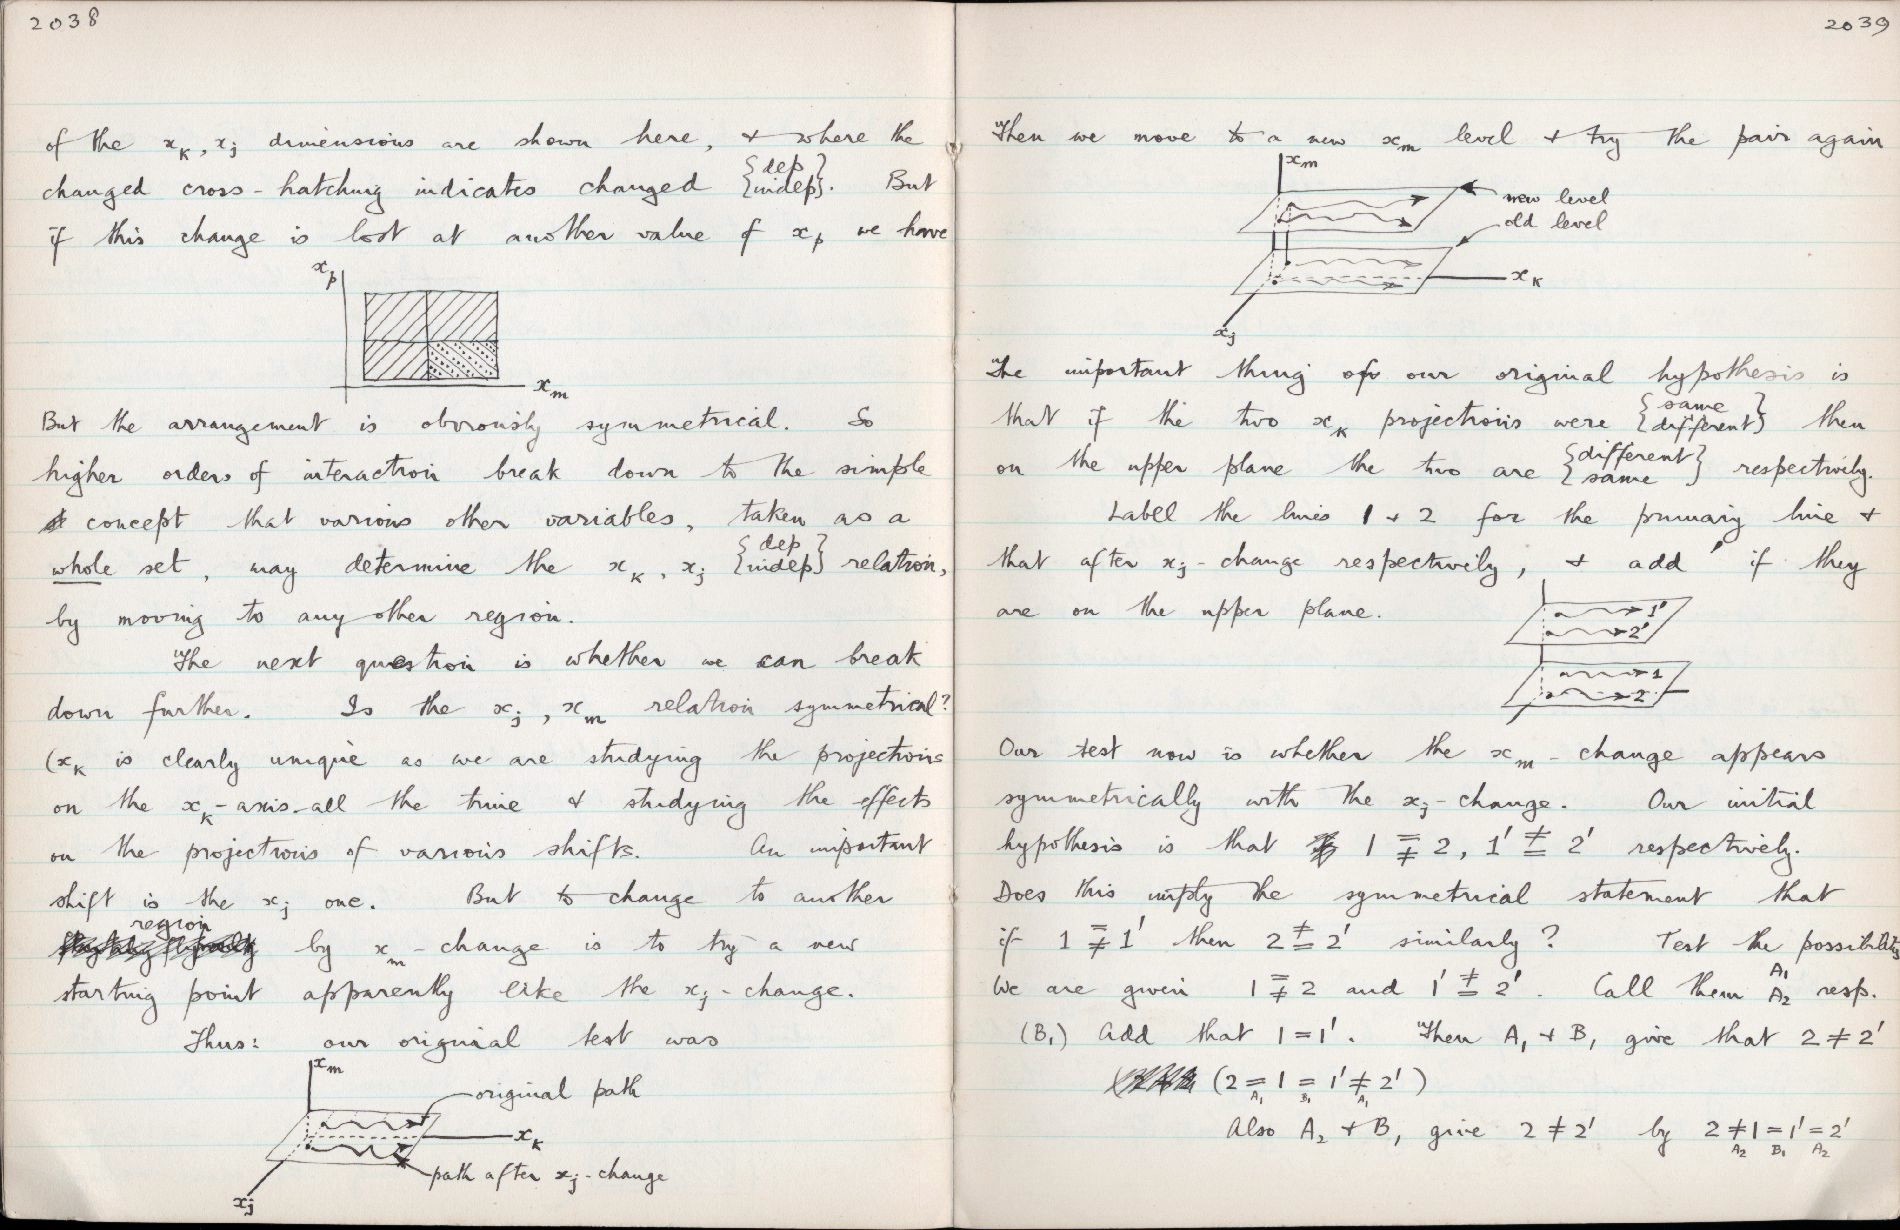 2038
of the xₖ, xⱼ dimensions are shown here, & where the
changed cross-hatching indicates changed {dep / indep}. But
if this change is lost at another value of xₚ we have
xₚ
xₘ
But the arrangement is obviously symmetrical. So
higher orders of interaction break down to the simple
concept that various other variables, taken as a
whole set, may determine the xₖ, xⱼ {dep / indep} relation,
by moving to any other region.
The next question is whether we can break
down further. Is the xⱼ, xₘ relation symmetrical?
(xₖ is clearly unique as we are studying the projections
on the xₖ-axis all the time & studying the effects
on the projections of various shifts. An important
shift is the xⱼ one. But to change to another
region by xₘ-change is to try a new
starting point apparently like the xⱼ-change.
Thus: our original test was
xₘ
original path
xₖ
path after xⱼ-change
xⱼ
2039
Then we move to a new xₘ level & try the pair again
xₘ
new level
old level
xₖ
xⱼ
The important thing of our original hypothesis is
that if the two xₖ projections were {same / different} then
on the upper plane the two are {different / same} respectively.
Label the lines 1 & 2 for the primary line &
that after xⱼ-change respectively, & add ′ if they
are on the upper plane.
1′
2′
1
2
Our test now is whether the xₘ-change appears
symmetrically with the xⱼ-change. Our initial
hypothesis is that 1 =/≠ 2, 1′ ≠/= 2′ respectively.
Does this imply the symmetrical statement that
if 1 =/≠ 1′ then 2 ≠/= 2′ similarly? Test the possibilities
We are given 1 =/≠ 2 and 1′ ≠/= 2′. Call them A₁/A₂ resp.
(B₁) Add that 1 = 1′. Then A₁ & B₁ give that 2 ≠ 2′
(2 =A₁ 1 =B₁ 1′ ≠A₁ 2′)
Also A₂ & B₁ give 2 ≠ 2′ by 2 ≠A₂ 1 =B₁ 1′ =A₂ 2′